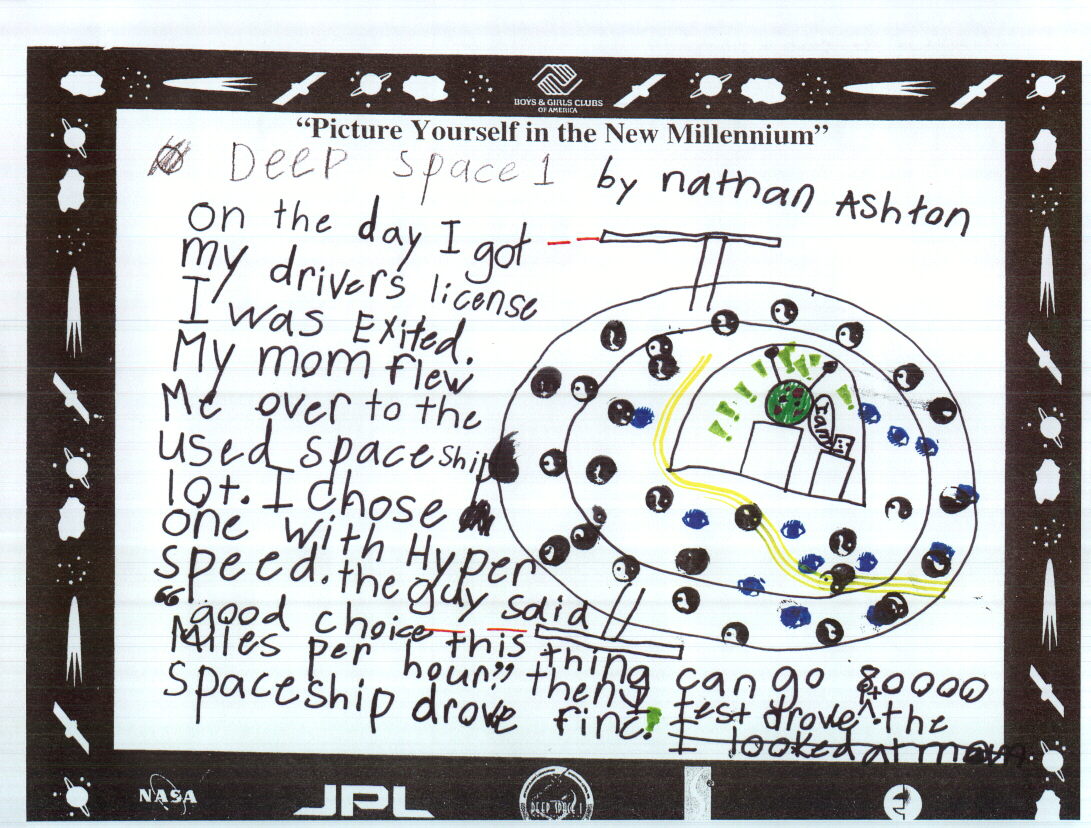 BOYS & GIRLS CLUBS
OF AMERICA
"Picture Yourself in the New Millennium"
Deep Space 1 by nathan Ashton
on the day I got
my drivers license
I was Exited.
My mom flew
Me over to the
used spaceship
lot. I chose
one with Hyper
speed. the guy said
"good choice this thing can go 80000
Miles per hour." then I test drove it. the
spaceship drove fine. I looked at mom
NASA
JPL
DEEP SPACE 1